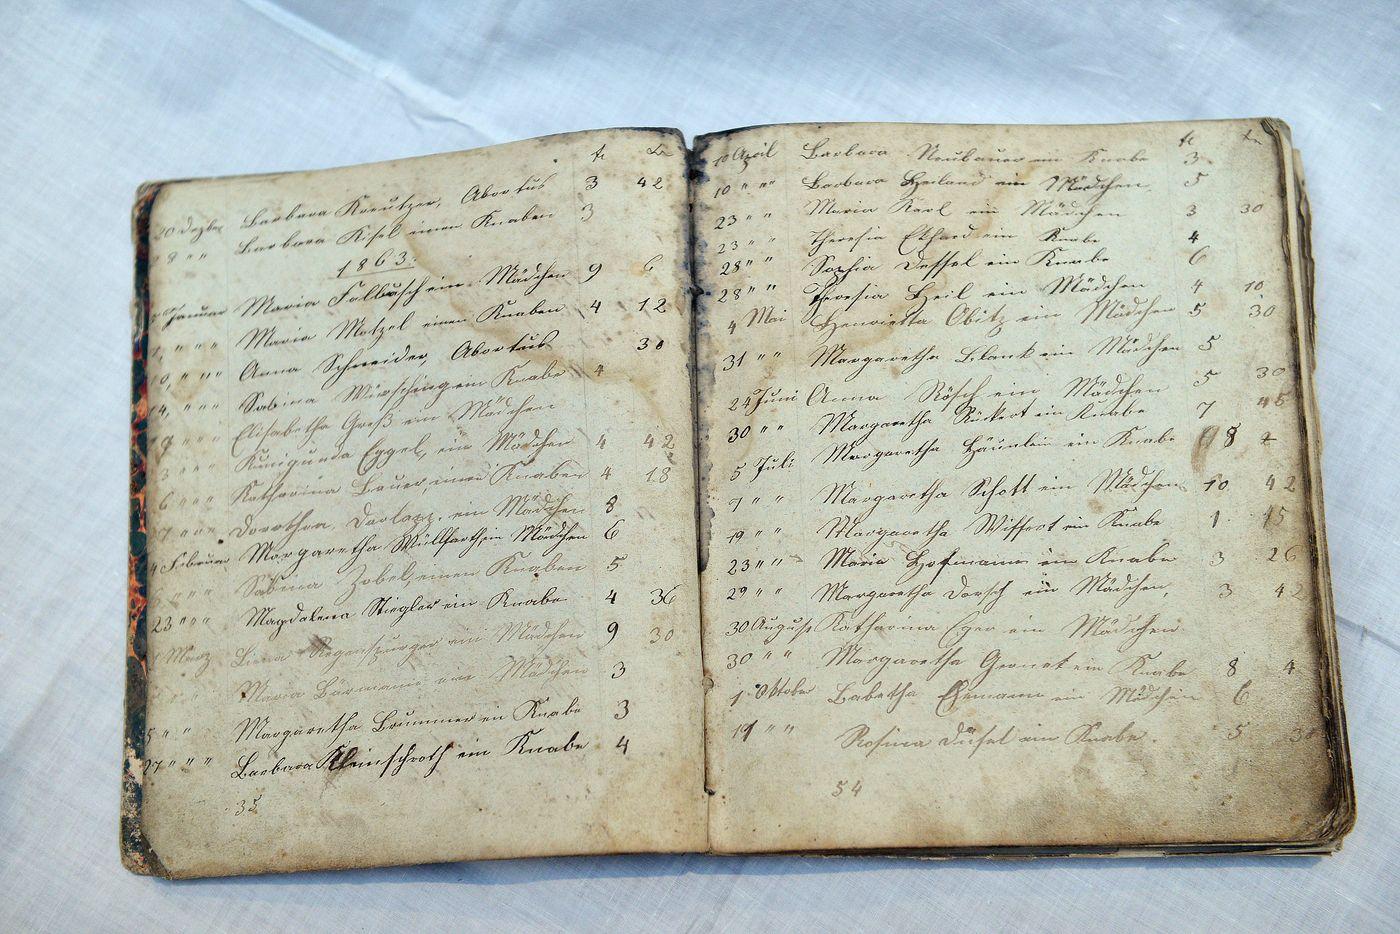 fl xr
20 Dezbr Barbara Kreutzer, Abortus 3 42
28 " " Barbara Kisel einen Knaben 3
1863.
Januar Maria Fallbusch ein Mädchen 9 6
" " " Maria Matzel einen Knaben 4 12
10, " " " Anna Schneider, Abortus 30
14, " " " Sabina Würsching ein Knabe 4
19 " " " Elisabetha Greß ein Mädchen
3 " " " Kunigunda Eggel, ein Mädchen 4 42
6 " " " Katharina Bauer, einen Knaben 4 18
7 " " " Dorothea ein Mädchen 8
4 Februar Margaretha Wüllfarth, ein Mädchen 6
6 " " " Sabina Zobel, einen Knaben 5
23 " " " Magdalena Stiegler ein Knabe 4 36
März Regenspurger ein Mädchen 9 30
" " Maria Bärmann ein Mädchen 3
5 " " Margaretha Brummer ein Knabe 3
27 " " " Barbara Kleinschroth ein Knabe 4
35
fl xr
10 April Barbara Neubauer ein Knabe 3
10 " " " Barbara Heiland ein Mädchen 5
23 " " Maria Karl ein Mädchen 3 30
23 " " Theresia Ekhard ein Knabe 4
28 " " Sophia Dessel ein Knabe 6
28 " " Theresia Beil ein Mädchen 4 10
4 Mai Henrietta Obitz ein Mädchen 5 30
31 " " Margaretha Blank ein Mädchen 5
24 Juni Anna Rösch ein Mädchen 5 30
30 " " Margaretha Rükert ein Knabe 7 45
5 Juli Margaretha Häunlein ein Knabe 8
7 " " Margaretha Schott ein Mädchen 10 42
19 " " Margaretha ein Knabe 1 45
23 " " Maria Hofmann ein Knabe 3 26
29 " " Margaretha Dorsch ein Mädchen, 3 42
30 August Katharina Eger ein Mädchen
30 " " Margaretha Gernet ein Knabe 8 4
1 Oktober Babetha Ehemann ein Mädchen 6
19 " " Rosina Düsel ein Knabe. 5 30
54